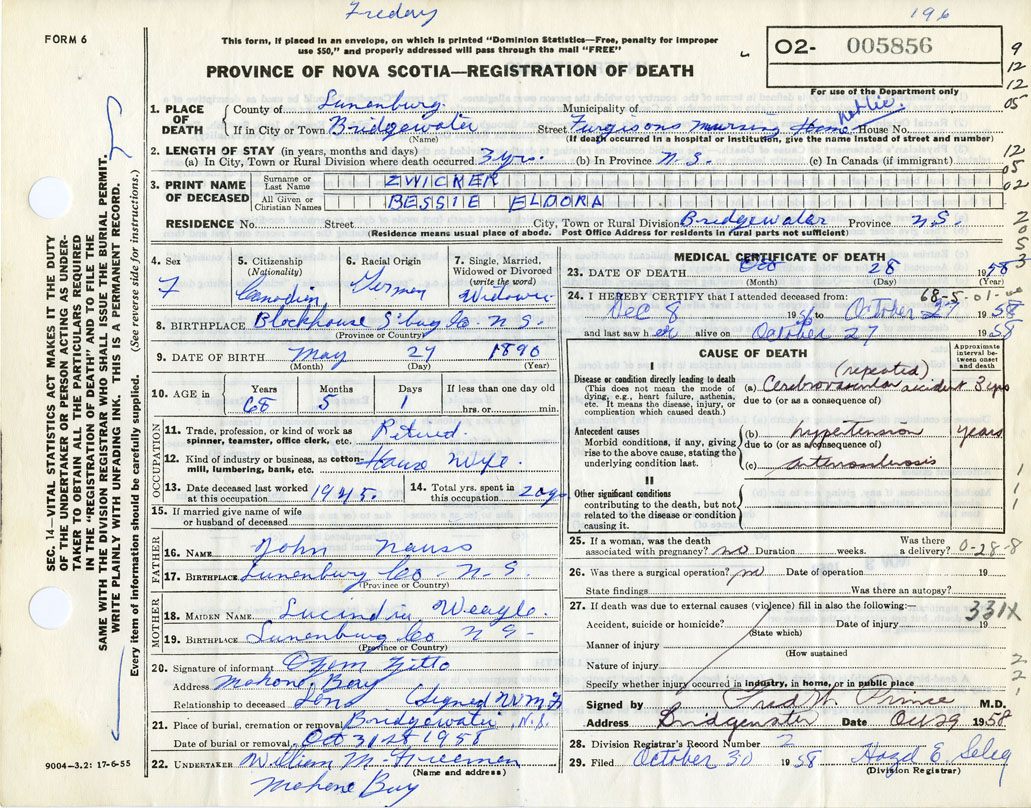 Freday
196
FORM 6
This form, if placed in an envelope, on which is printed "Dominion Statistics—Free, penalty for improper
use $50," and properly addressed will pass through the mail "FREE"
O2- 005856
PROVINCE OF NOVA SCOTIA—REGISTRATION OF DEATH
For use of the Department only
9
12
12
05
12
05
02
2
0
5
3
1. PLACE OF DEATH
County of Lunenburg Municipality of
If in City or Town Bridgewater Street Furgisons Nursing Home House No.
(Name) (If death occurred in a hospital or institution, give the name instead of street and number)
2. LENGTH OF STAY (in years, months and days)
(a) In City, Town or Rural Division where death occurred 3 yrs. (b) In Province N.S. (c) In Canada (if immigrant)
3. PRINT NAME OF DECEASED
Surname or Last Name ZWICKER
All Given or Christian Names BESSIE ELDORA
RESIDENCE No. Street City, Town or Rural Division Bridgewater Province N.S.
(Residence means usual place of abode. Post Office Address for residents in rural parts not sufficient)
4. Sex F
5. Citizenship (Nationality) Canadien
6. Racial Origin German
7. Single, Married, Widowed or Divorced (write the word) Widow
8. BIRTHPLACE Blockhouse L'burg Co. N.S.
(Province or Country)
9. DATE OF BIRTH May 27 1890
(Month) (Day) (Year)
10. AGE in Years 68 Months 5 Days 1 If less than one day old hrs. or min.
OCCUPATION
11. Trade, profession, or kind of work as spinner, teamster, office clerk, etc. Retired.
12. Kind of industry or business, as cotton-mill, lumbering, bank, etc. House Wife
13. Date deceased last worked at this occupation 1945.
14. Total yrs. spent in this occupation 20 yrs
15. If married give name of wife or husband of deceased
FATHER
16. NAME John Nauss
17. BIRTHPLACE Lunenburg Co. N.S.
(Province or Country)
MOTHER
18. MAIDEN NAME Lucindia Weagle.
19. BIRTHPLACE Lunenburg Co N S
(Province or Country)
20. Signature of informant
Address Mahone Bay
Relationship to deceased Son (Signed W M F)
21. Place of burial, cremation or removal Bridgewater N.S.
Date of burial or removal Oct 31st 1958
22. UNDERTAKER William M. Freeman
(Name and address)
Mahone Bay
MEDICAL CERTIFICATE OF DEATH
23. DATE OF DEATH Oct 28 1958
(Month) (Day) (Year)
68-5-01-00
24. I HEREBY CERTIFY that I attended deceased from:
Dec 8 1956 to October 27 1958
and last saw her alive on October 27 1958
CAUSE OF DEATH
Approximate interval between onset and death
I
Disease or condition directly leading to death
(This does not mean the mode of dying, e.g., heart failure, asthenia, etc. It means the disease, injury, or complication which caused death.)
(repeated)
(a) Cerebrovascular accident 3 yrs
due to (or as a consequence of)
Antecedent causes
Morbid conditions, if any, giving rise to the above cause, stating the underlying condition last.
(b) hypertension years
due to (or as a consequence of)
(c) arteriosclerosis
II
Other significant conditions contributing to the death, but not related to the disease or condition causing it.
1
1
1
25. If a woman, was the death associated with pregnancy? no Duration weeks. Was there a delivery? 0-28-8
26. Was there a surgical operation? no Date of operation 19
State findings Was there an autopsy?
27. If death was due to external causes (violence) fill in also the following:— 331X
Accident, suicide or homicide? Date of injury 19
(State which)
Manner of injury
(How sustained
Nature of injury
Specify whether injury occurred in industry, in home, or in public place
2
2
1
Signed by Fred W. Prince M.D.
Address Bridgewater Date Oct 29 1958
28. Division Registrar's Record Number 2
29. Filed October 30 1958 Hazel E. Seleg
(Division Registrar)
SEC. 14—VITAL STATISTICS ACT MAKES IT THE DUTY
OF THE UNDERTAKER OR PERSON ACTING AS UNDER-
TAKER TO OBTAIN ALL THE PARTICULARS REQUIRED
IN THE "REGISTRATION OF DEATH" AND TO FILE THE
SAME WITH THE DIVISION REGISTRAR WHO SHALL ISSUE THE BURIAL PERMIT.
WRITE PLAINLY WITH UNFADING INK. THIS IS A PERMANENT RECORD.
Every item of information should be carefully supplied. (See reverse side for instructions.)
9004—3.2: 17-6-55